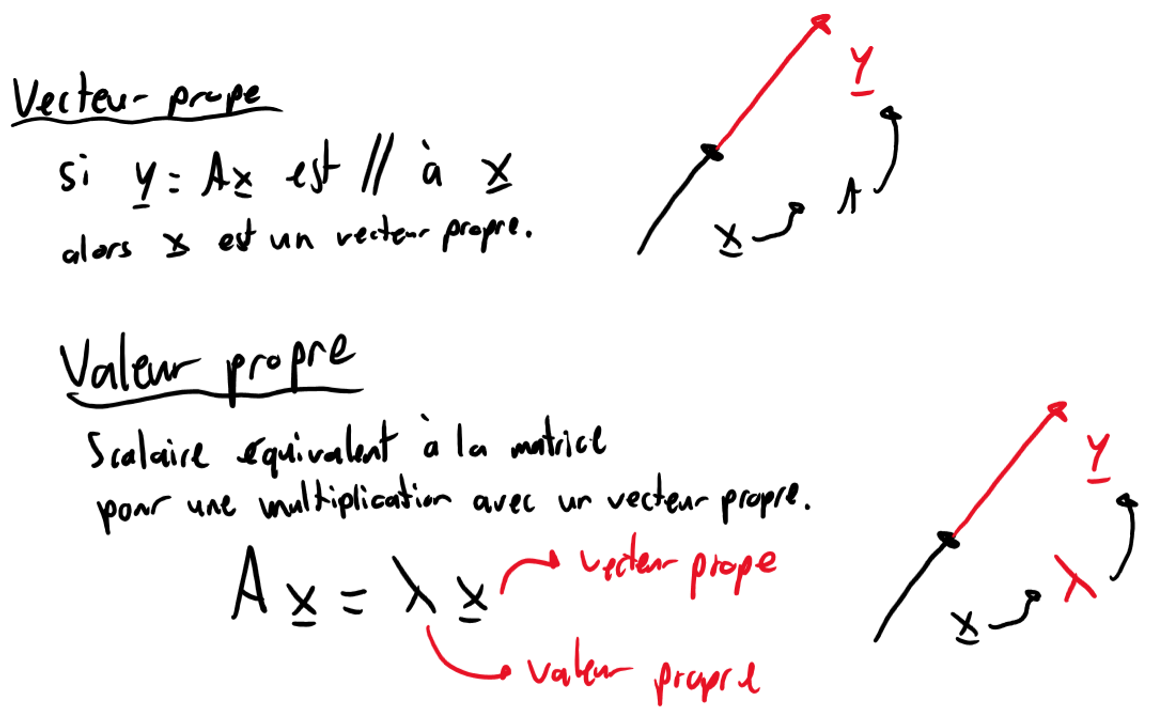 Vecteur prope
si y = Ax est // à x
alors x est un vecteur propre.
y
A
x
Valeur propre
Scalaire équivalent à la matrice
pour une multiplication avec un vecteur propre.
A x = λ x
vecteur prope
valeur propre
y
λ
x